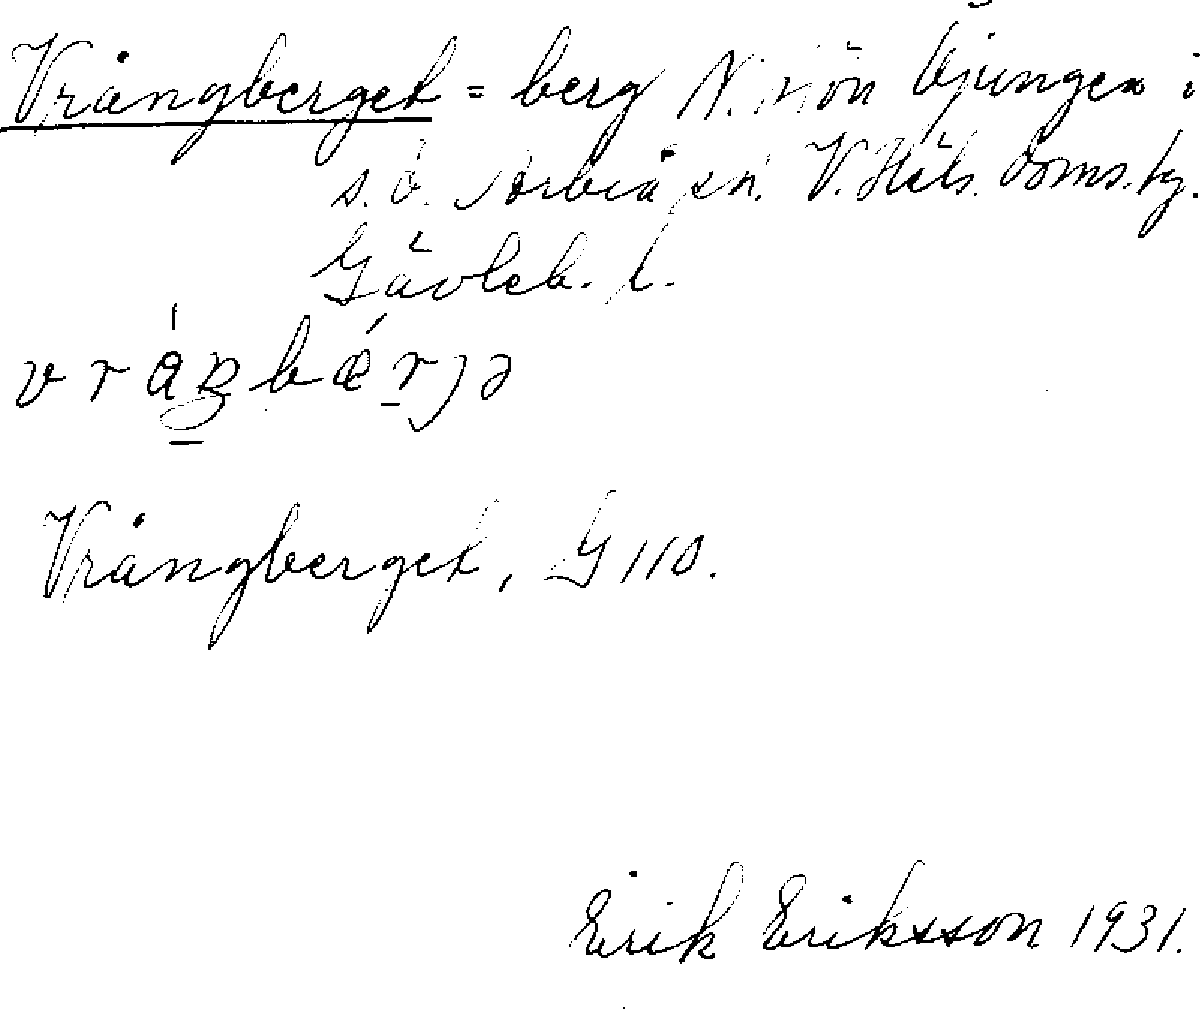 Vrångberget = berg N. sjön Öjungen i
s.ö. Arbrå sn. V. Häls. doms. hg.
Gävleb. l.
Vrångberget, G 110.
Erik Eriksson 1931.